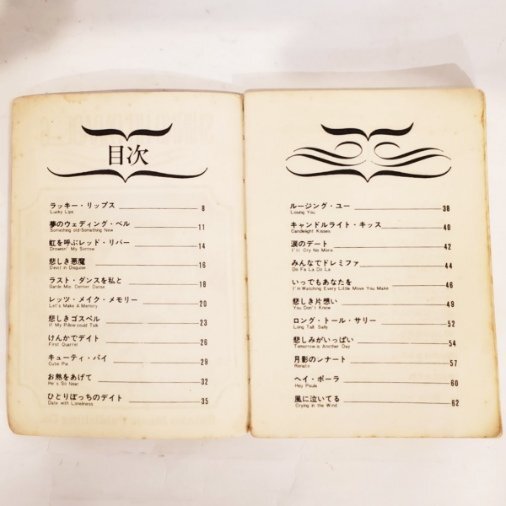 目次
ラッキー・リップス 8
Lucky Lips
夢のウェディング・ベル 11
Something Old Something New
虹を呼ぶレッド・リバー 14
Drownin' My Sorrow
悲しき悪魔 16
Devil in Disguise
ラスト・ダンスを私と 18
Save Me Dance
レッツ・メイク・メモリー 20
Let's Make A Memory
悲しきゴスペル 23
If My Pillow Could Talk
けんかでデイト 26
First Quarrel
キューティ・パイ 29
Cutie Pie
お熱をあげて 32
He's So Near
ひとりぼっちのデイト 35
Date with Loneliness
ルージング・ユー 38
Losing You
キャンドルライト・キッス 40
Candlelight Kisses
涙のデート 42
I'll Cry No More
みんなでドレミファ 44
Do Re La Do La
いってもあなたを 46
I'm Watching Every Little Move You Make
悲しき片想い 49
You Don't Know
ロング・トール・サリー 52
Long Tall Sally
悲しみがいっぱい 54
Tomorrow is Another Day
月影のレナート 57
Renato
ヘイ・ポーラ 60
Hey Paula
風に泣いてる 62
Crying in the Wind